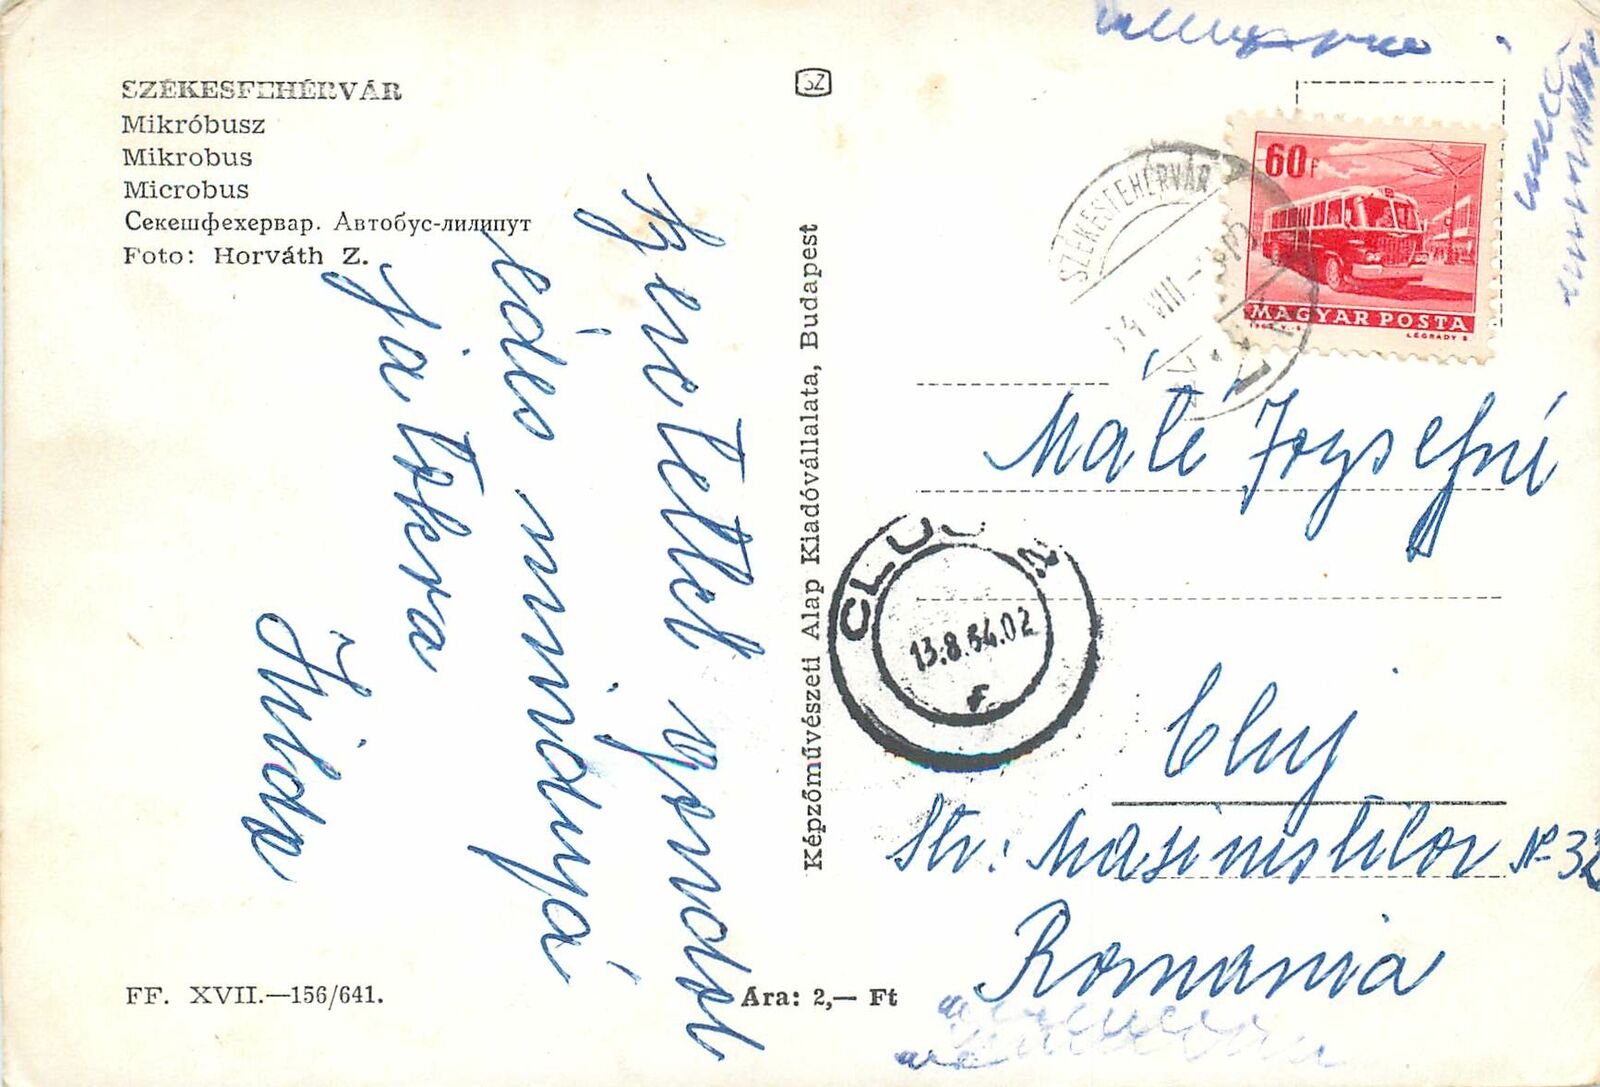 SZÉKESFEHÉRVÁR
Mikróbusz
Mikrobus
Microbus
Секешфехервар. Автобус-лилипут
Foto: Horváth Z.
Szeretettel gondol
édes mindnyá
ja tokra
Ildo
FF. XVII.—156/641.
Ára: 2,— Ft
Képzőművészeti Alap Kiadóvállalata, Budapest
SZ
SZÉKESFEHÉRVÁR
VIII.
60f
MAGYAR POSTA
LÉGRÁDY S
Máté Jozsefné
CLUJ
13.8.64.02
Cluj
Str: Masinistilor № 32
Romania